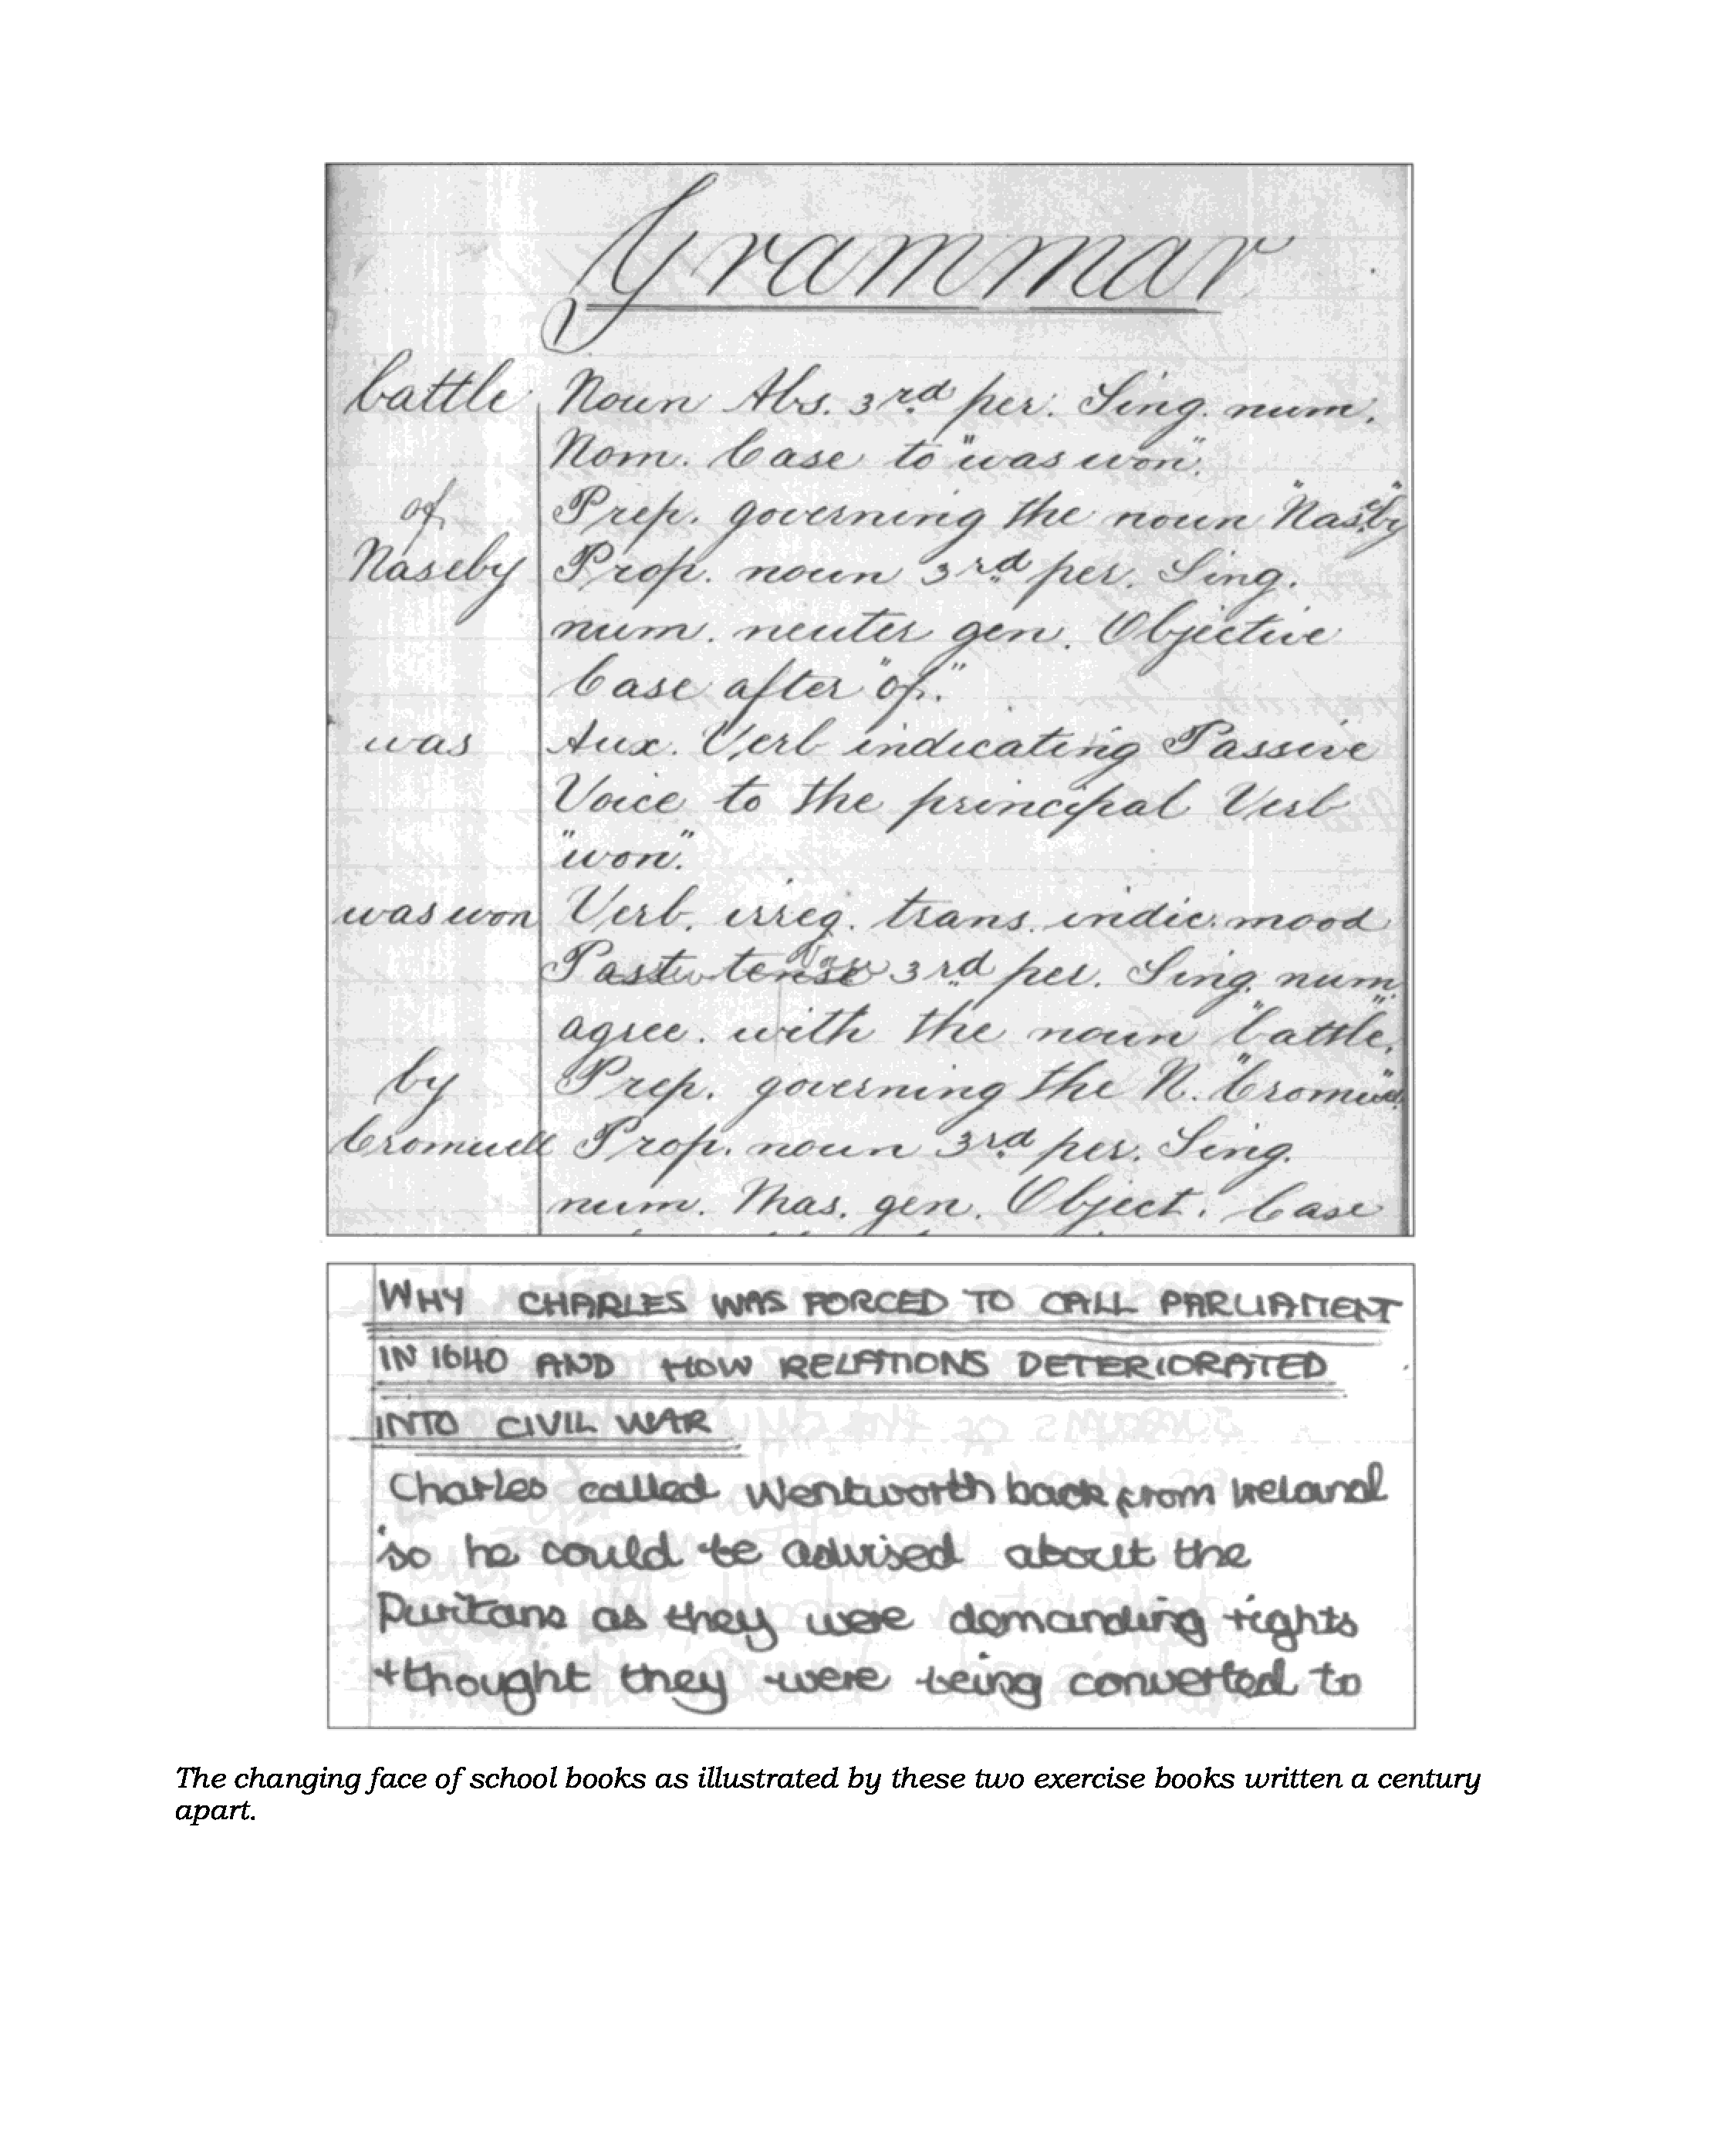 Grammar
battle Noun Abs. 3rd per. Sing. num.
Nom. Case to "was won".
of Prep. governing the noun "Nas.by"
Naseby Prop. noun 3rd per. Sing.
num. neuter gen. Objective
Case after "of."
was Aux. Verb indicating Passive
Voice to the principal Verb
"won".
was won Verb. irreg. trans. indic. mood
Past tense 3rd per. Sing. num
agree. with the noun "battle".
by Prep. governing the N. "Cromwell"
Cromwell Prop. noun 3rd per. Sing.
num. Mas. gen. Object. Case
WHY CHARLES WAS FORCED TO CALL PARLIAMENT
IN 1640 AND HOW RELATIONS DETERIORATED
INTO CIVIL WAR
Charles called Wentworth back from Ireland
so he could be advised about the
Puritans as they were demanding rights
+ thought they were being converted to
The changing face of school books as illustrated by these two exercise books written a century
apart.